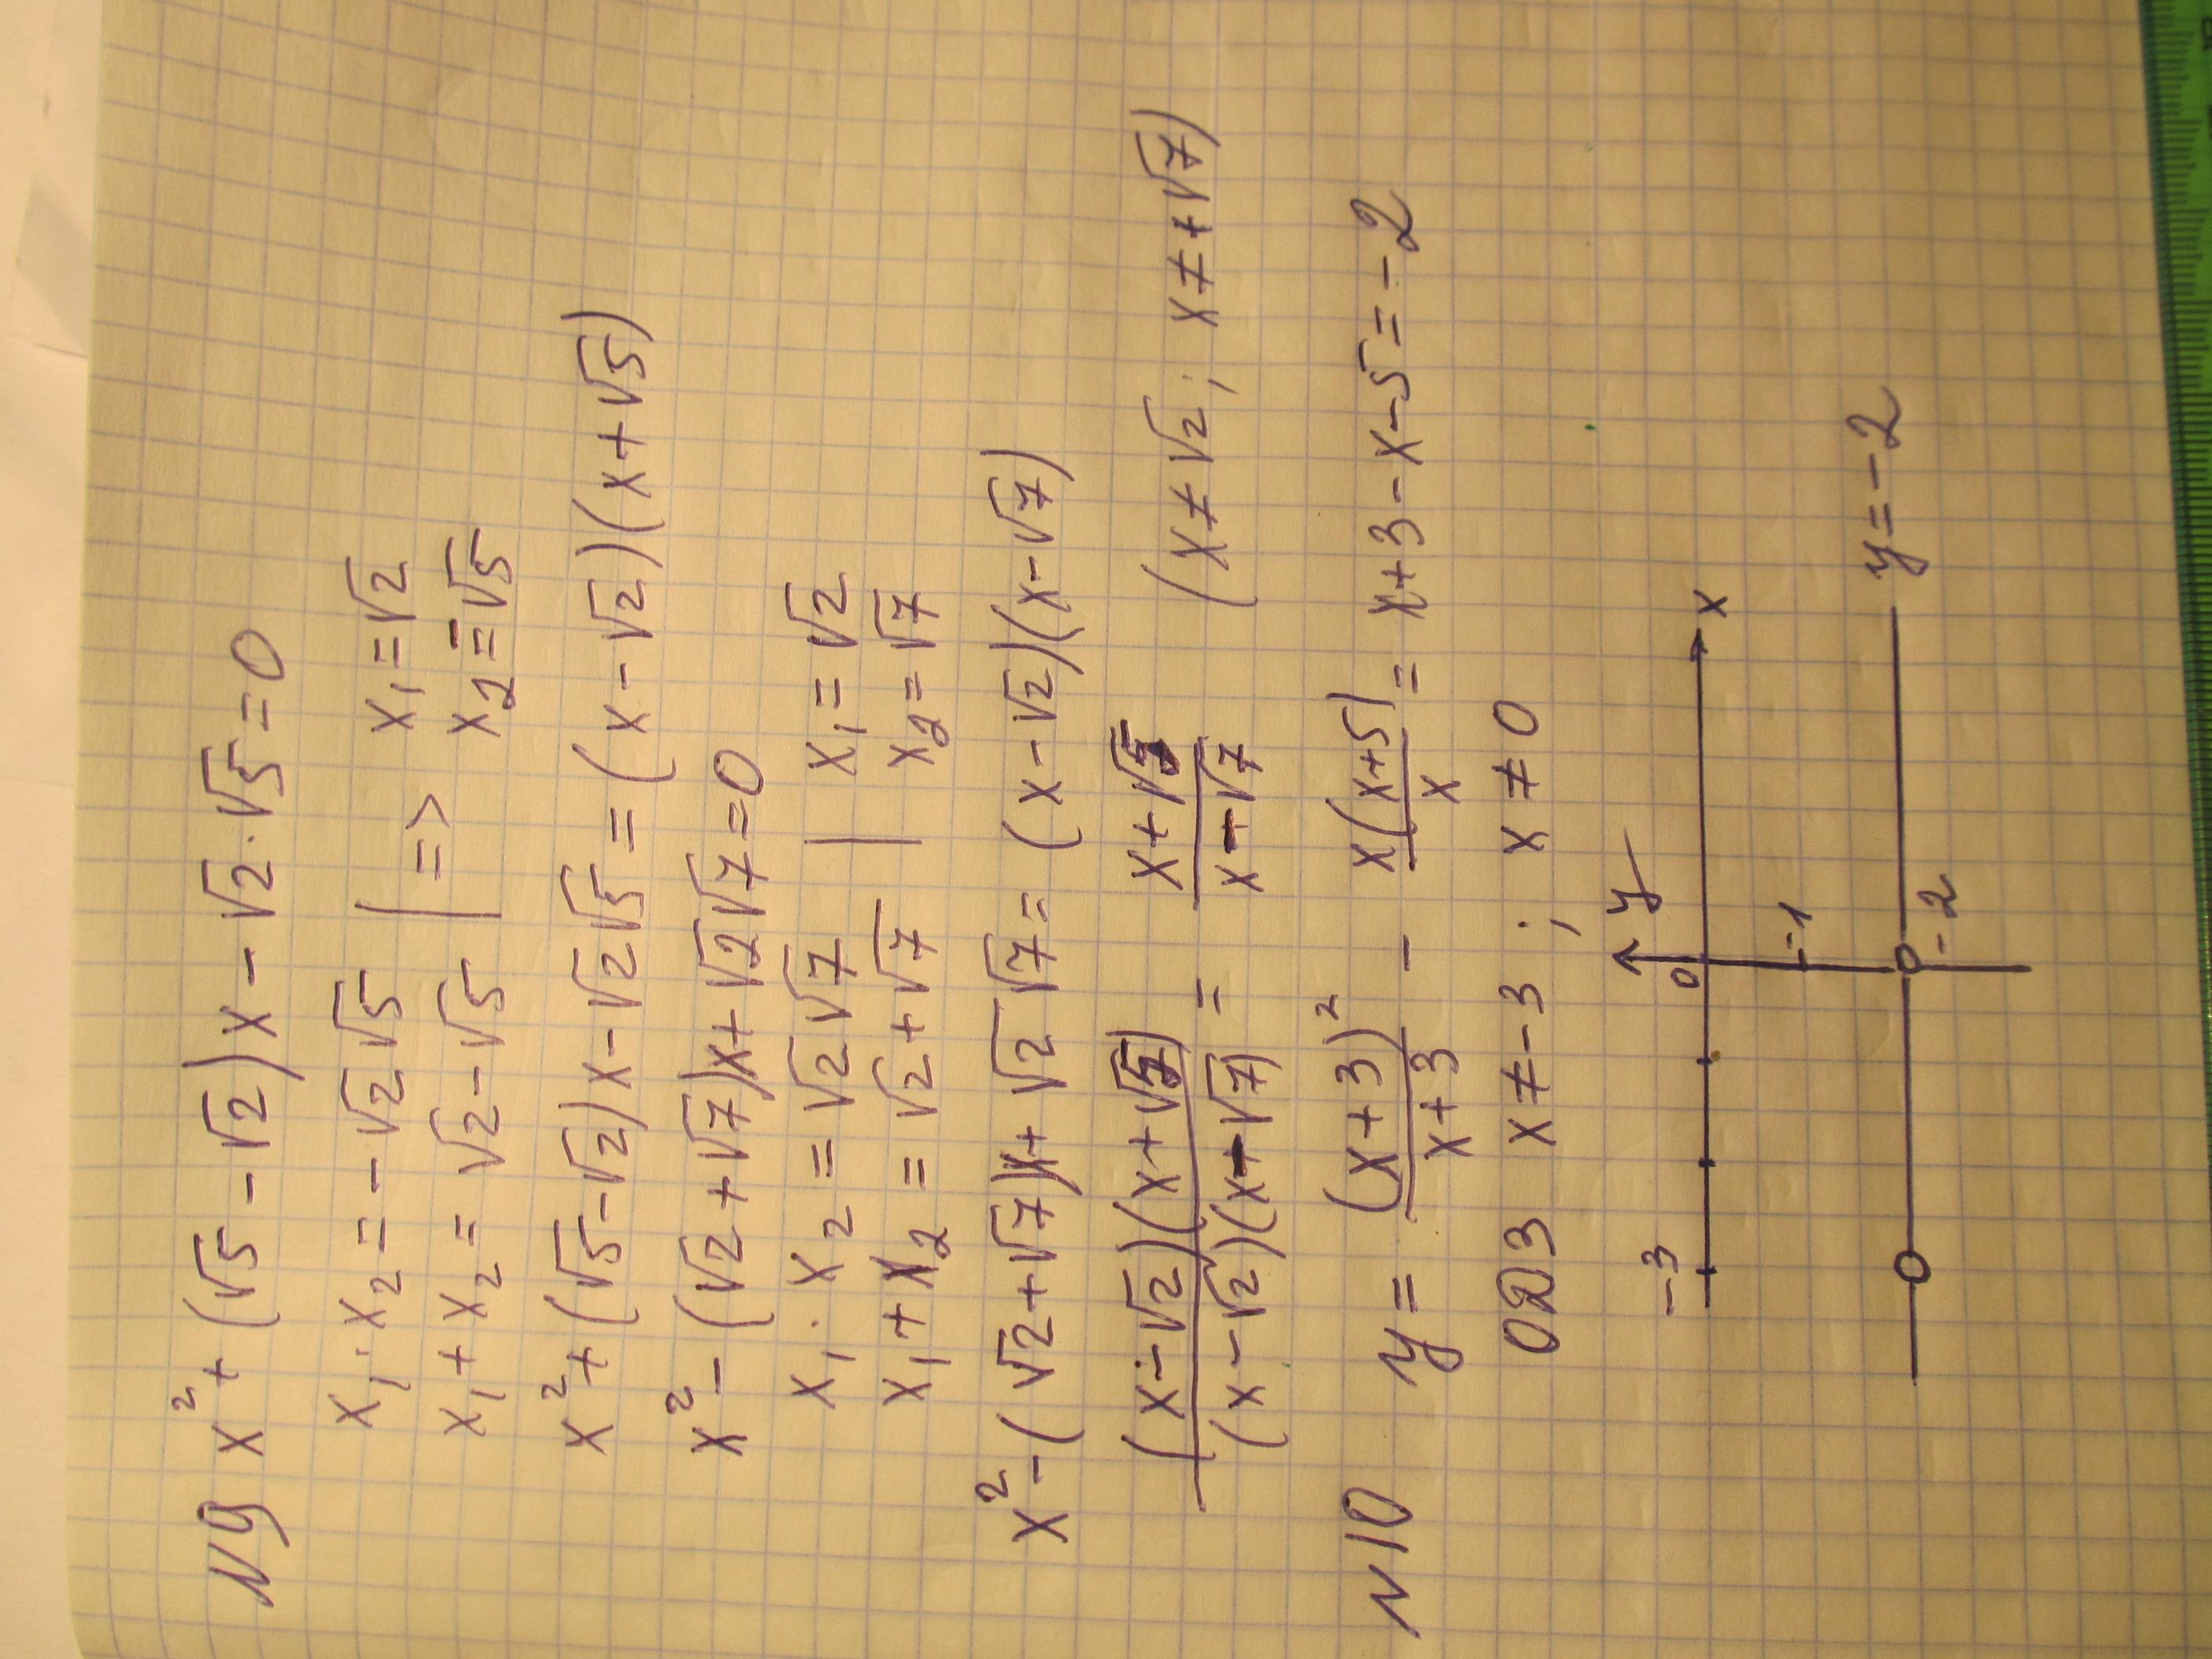 N9 x² + (√5 - √2)x - √2·√5 = 0
x₁·x₂ = -√2√5 | => x₁ = √2
x₁ + x₂ = √2 - √5 x₂ = -√5
x² + (√5 - √2)x - √2√5 = (x - √2)(x + √5)
x² - (√2 + √7)x + √2√7 = 0
x₁·x₂ = √2√7 | x₁ = √2
x₁ + x₂ = √2 + √7 x₂ = √7
x² - (√2 + √7)x + √2√7 = (x - √2)(x - √7)
(x - √2)(x + √5)/(x - √2)(x - √7) = x + √5/x - √7 (x ≠ √2; x ≠ +√7)
N10 y = (x+3)²/x+3 - x(x+5)/x = x+3-x-5 = -2
ОДЗ x ≠ -3; x ≠ 0
y
-3 0 x
-1
-2 y = -2